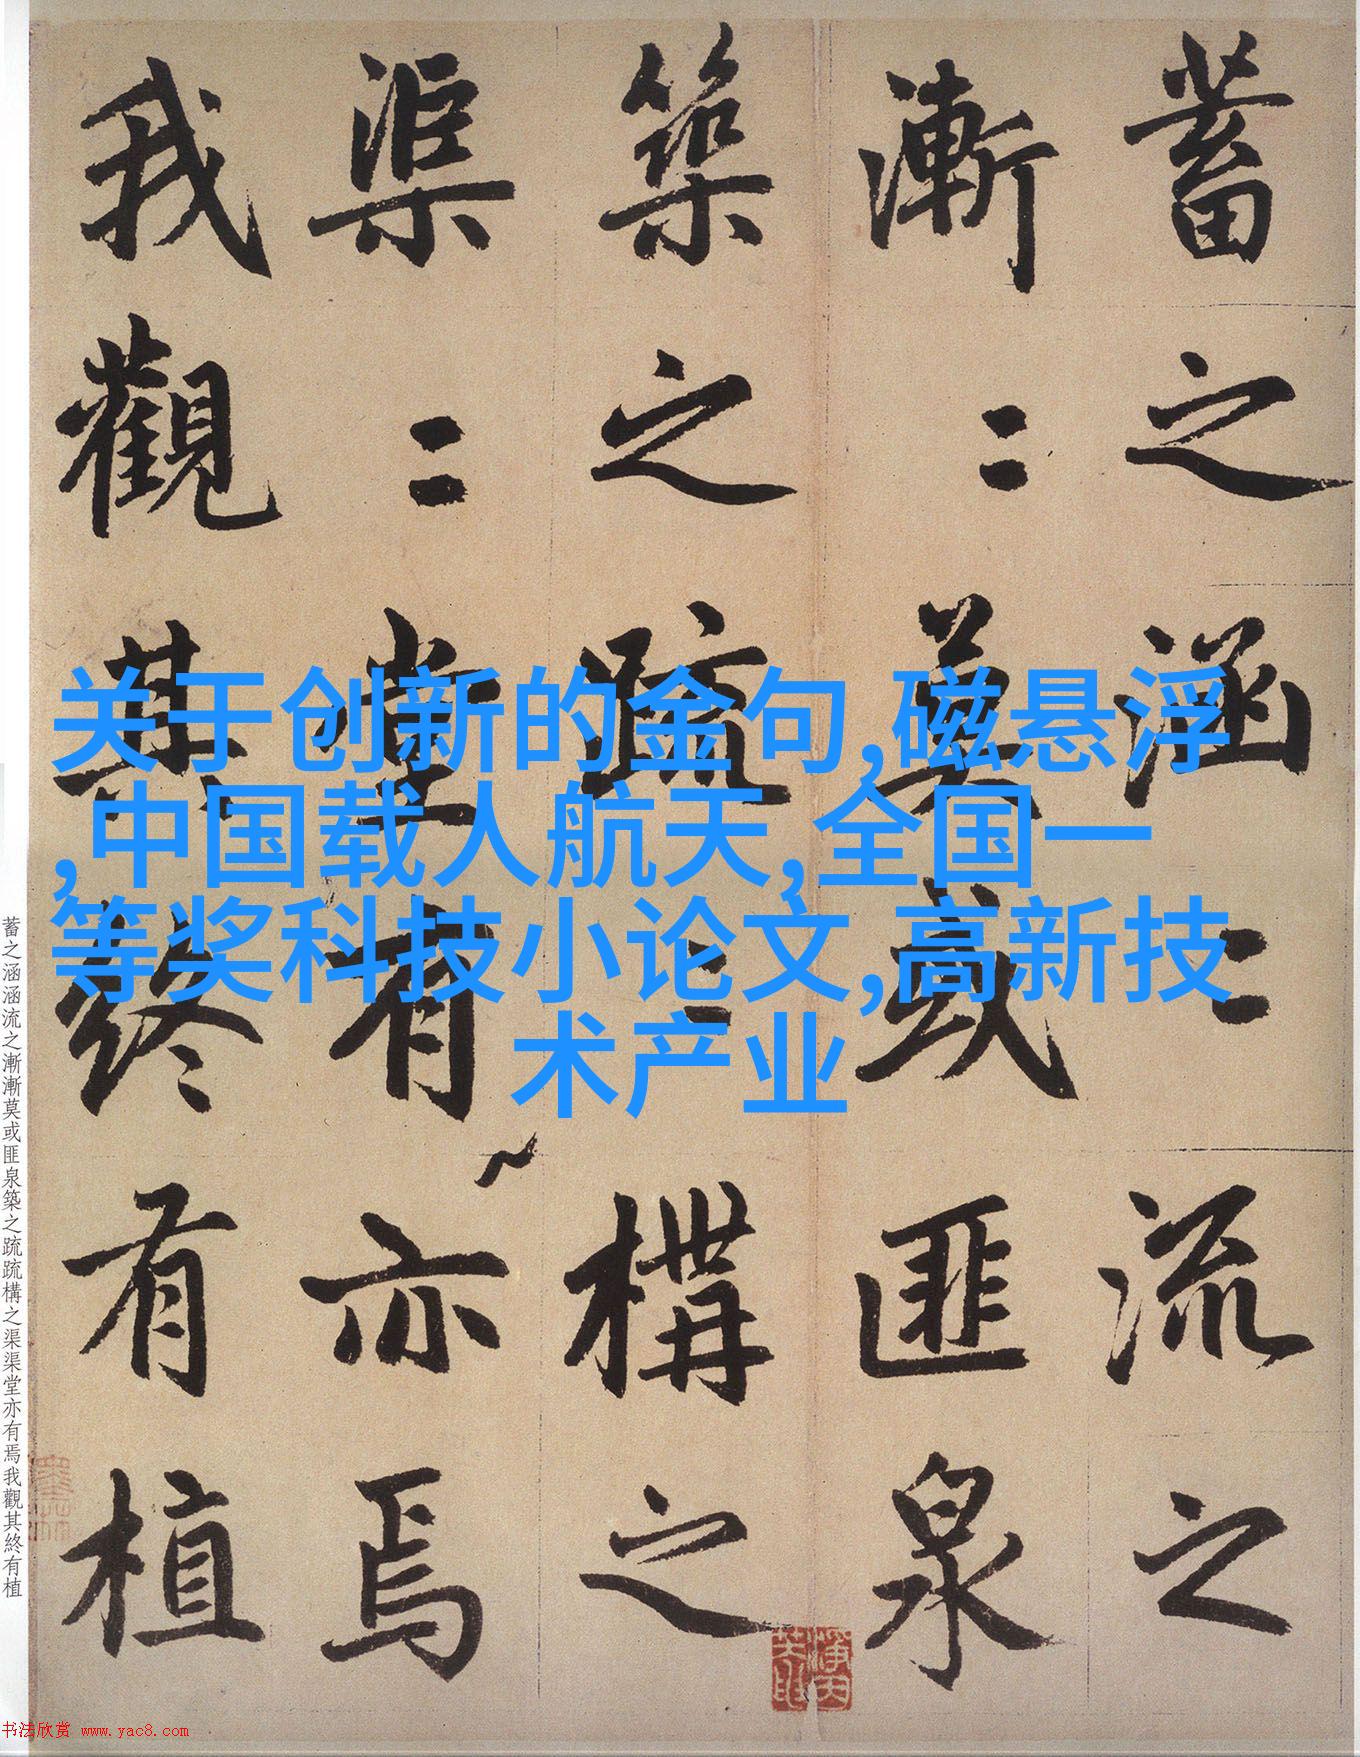 蓄之涵〻流之
漸〻莫或匪泉
築之疏〻構之
渠〻堂有亦焉
我觀其終有植
关于创新的金句,磁悬浮
,中国载人航天,全国一
等奖科技小论文,高新技
术产业
蓄之涵涵流之漸漸莫或匪泉築之疏疏構之渠渠堂亦有焉我觀其終有植
书法欣赏 www.yac8.com